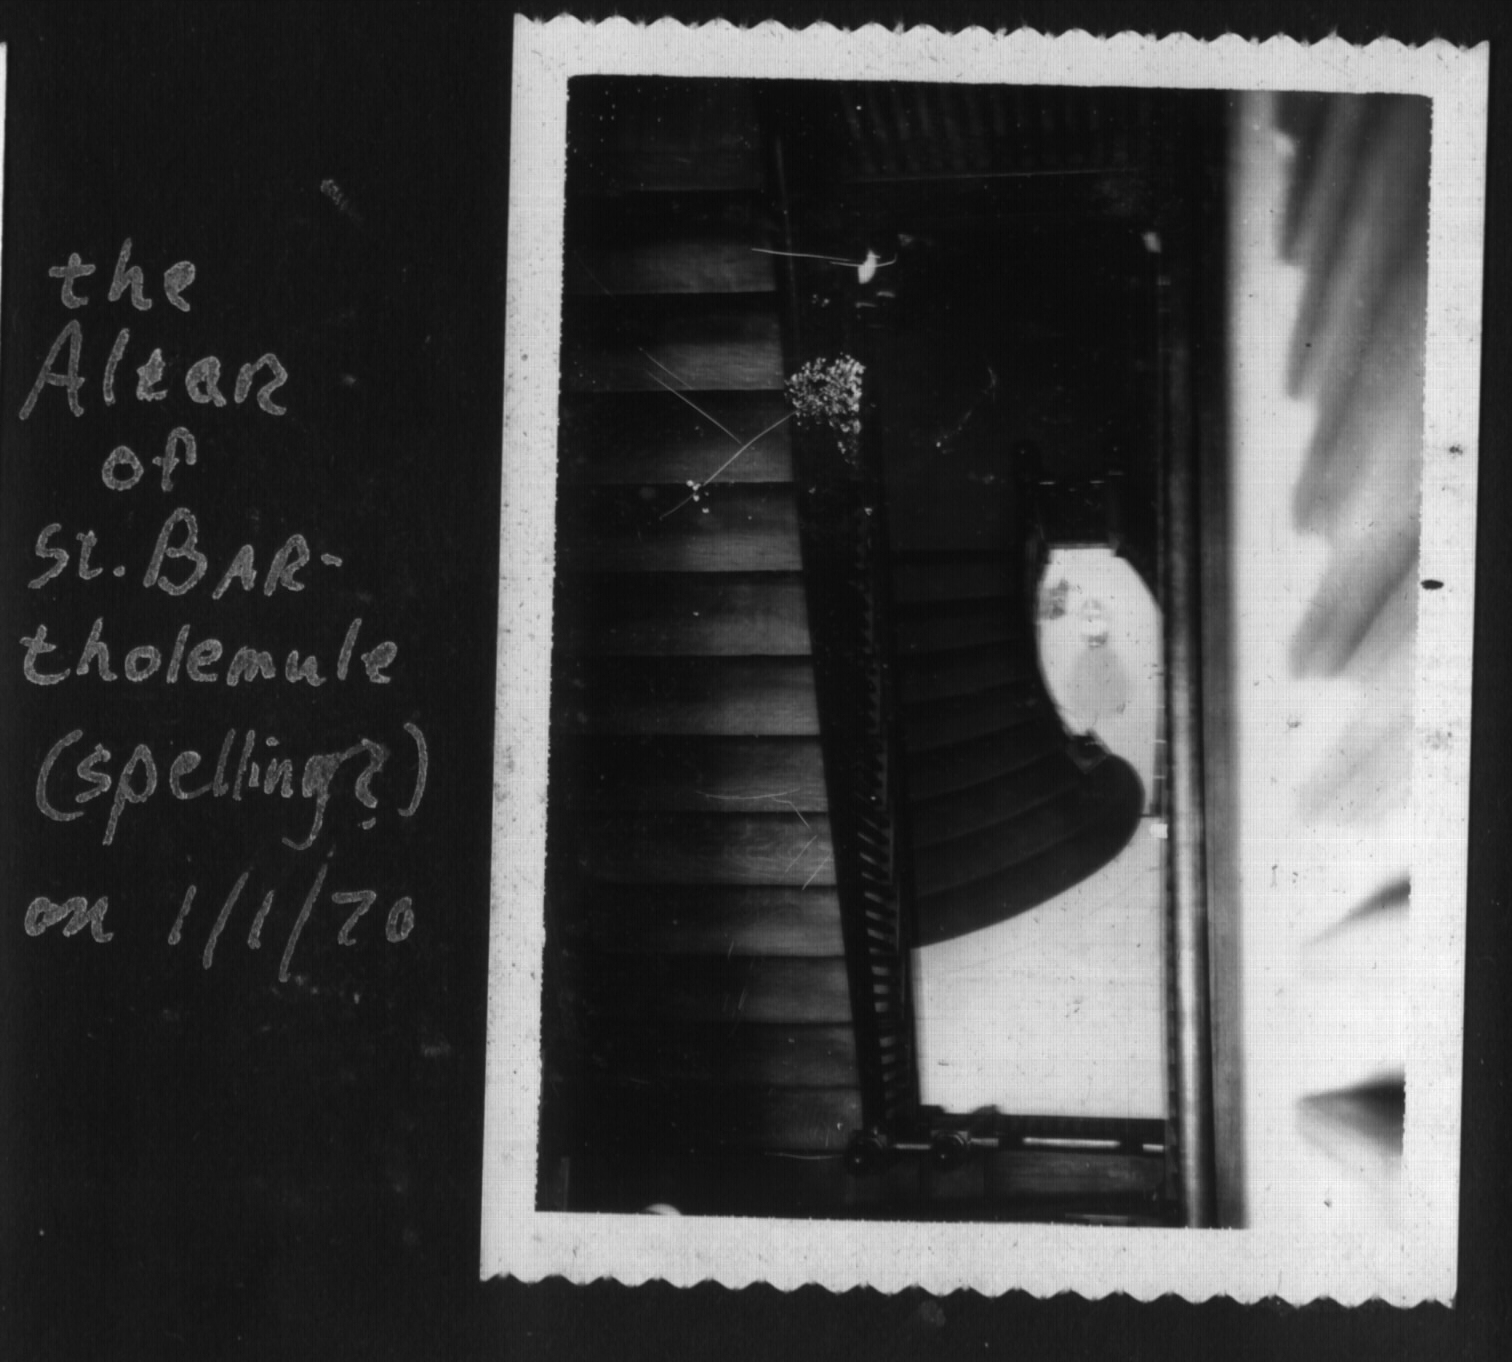 the
Altar
of
St. BAR-
tholemule
(spelling?)
on 1/1/70